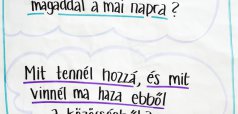 magaddal a mai napra?
Mit tennél hozzá, és mit
vinnél ma haza ebből
a közösségből?